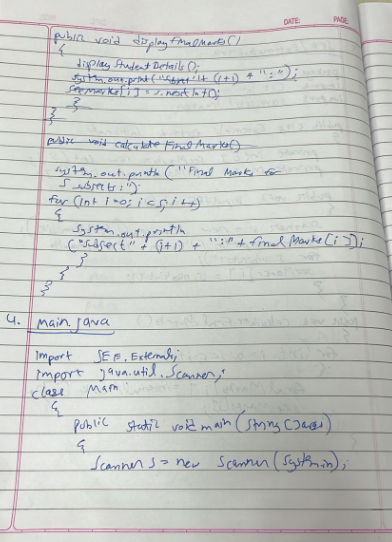 DATE: PAGE:
public void displayFinalMarks()
{
displayStudentDetails();
System.out.print("Subject" + (i+1) + ":");
seeMarks[i] = s.nextInt();
}
}
public void calculate Final Marks()
System.out.println ("Final Marks for
5 subjects:");
for (int i=0; i<5; i++)
{
System.out.println
("Subject" + (i+1) + ":" + final Marks[i]);
}
}
}
4. Main.java
import SEE.Externals;
import java.util.Scanner;
class Main
{
public static void main (String []args)
{
Scanner s = new Scanner (System.in);